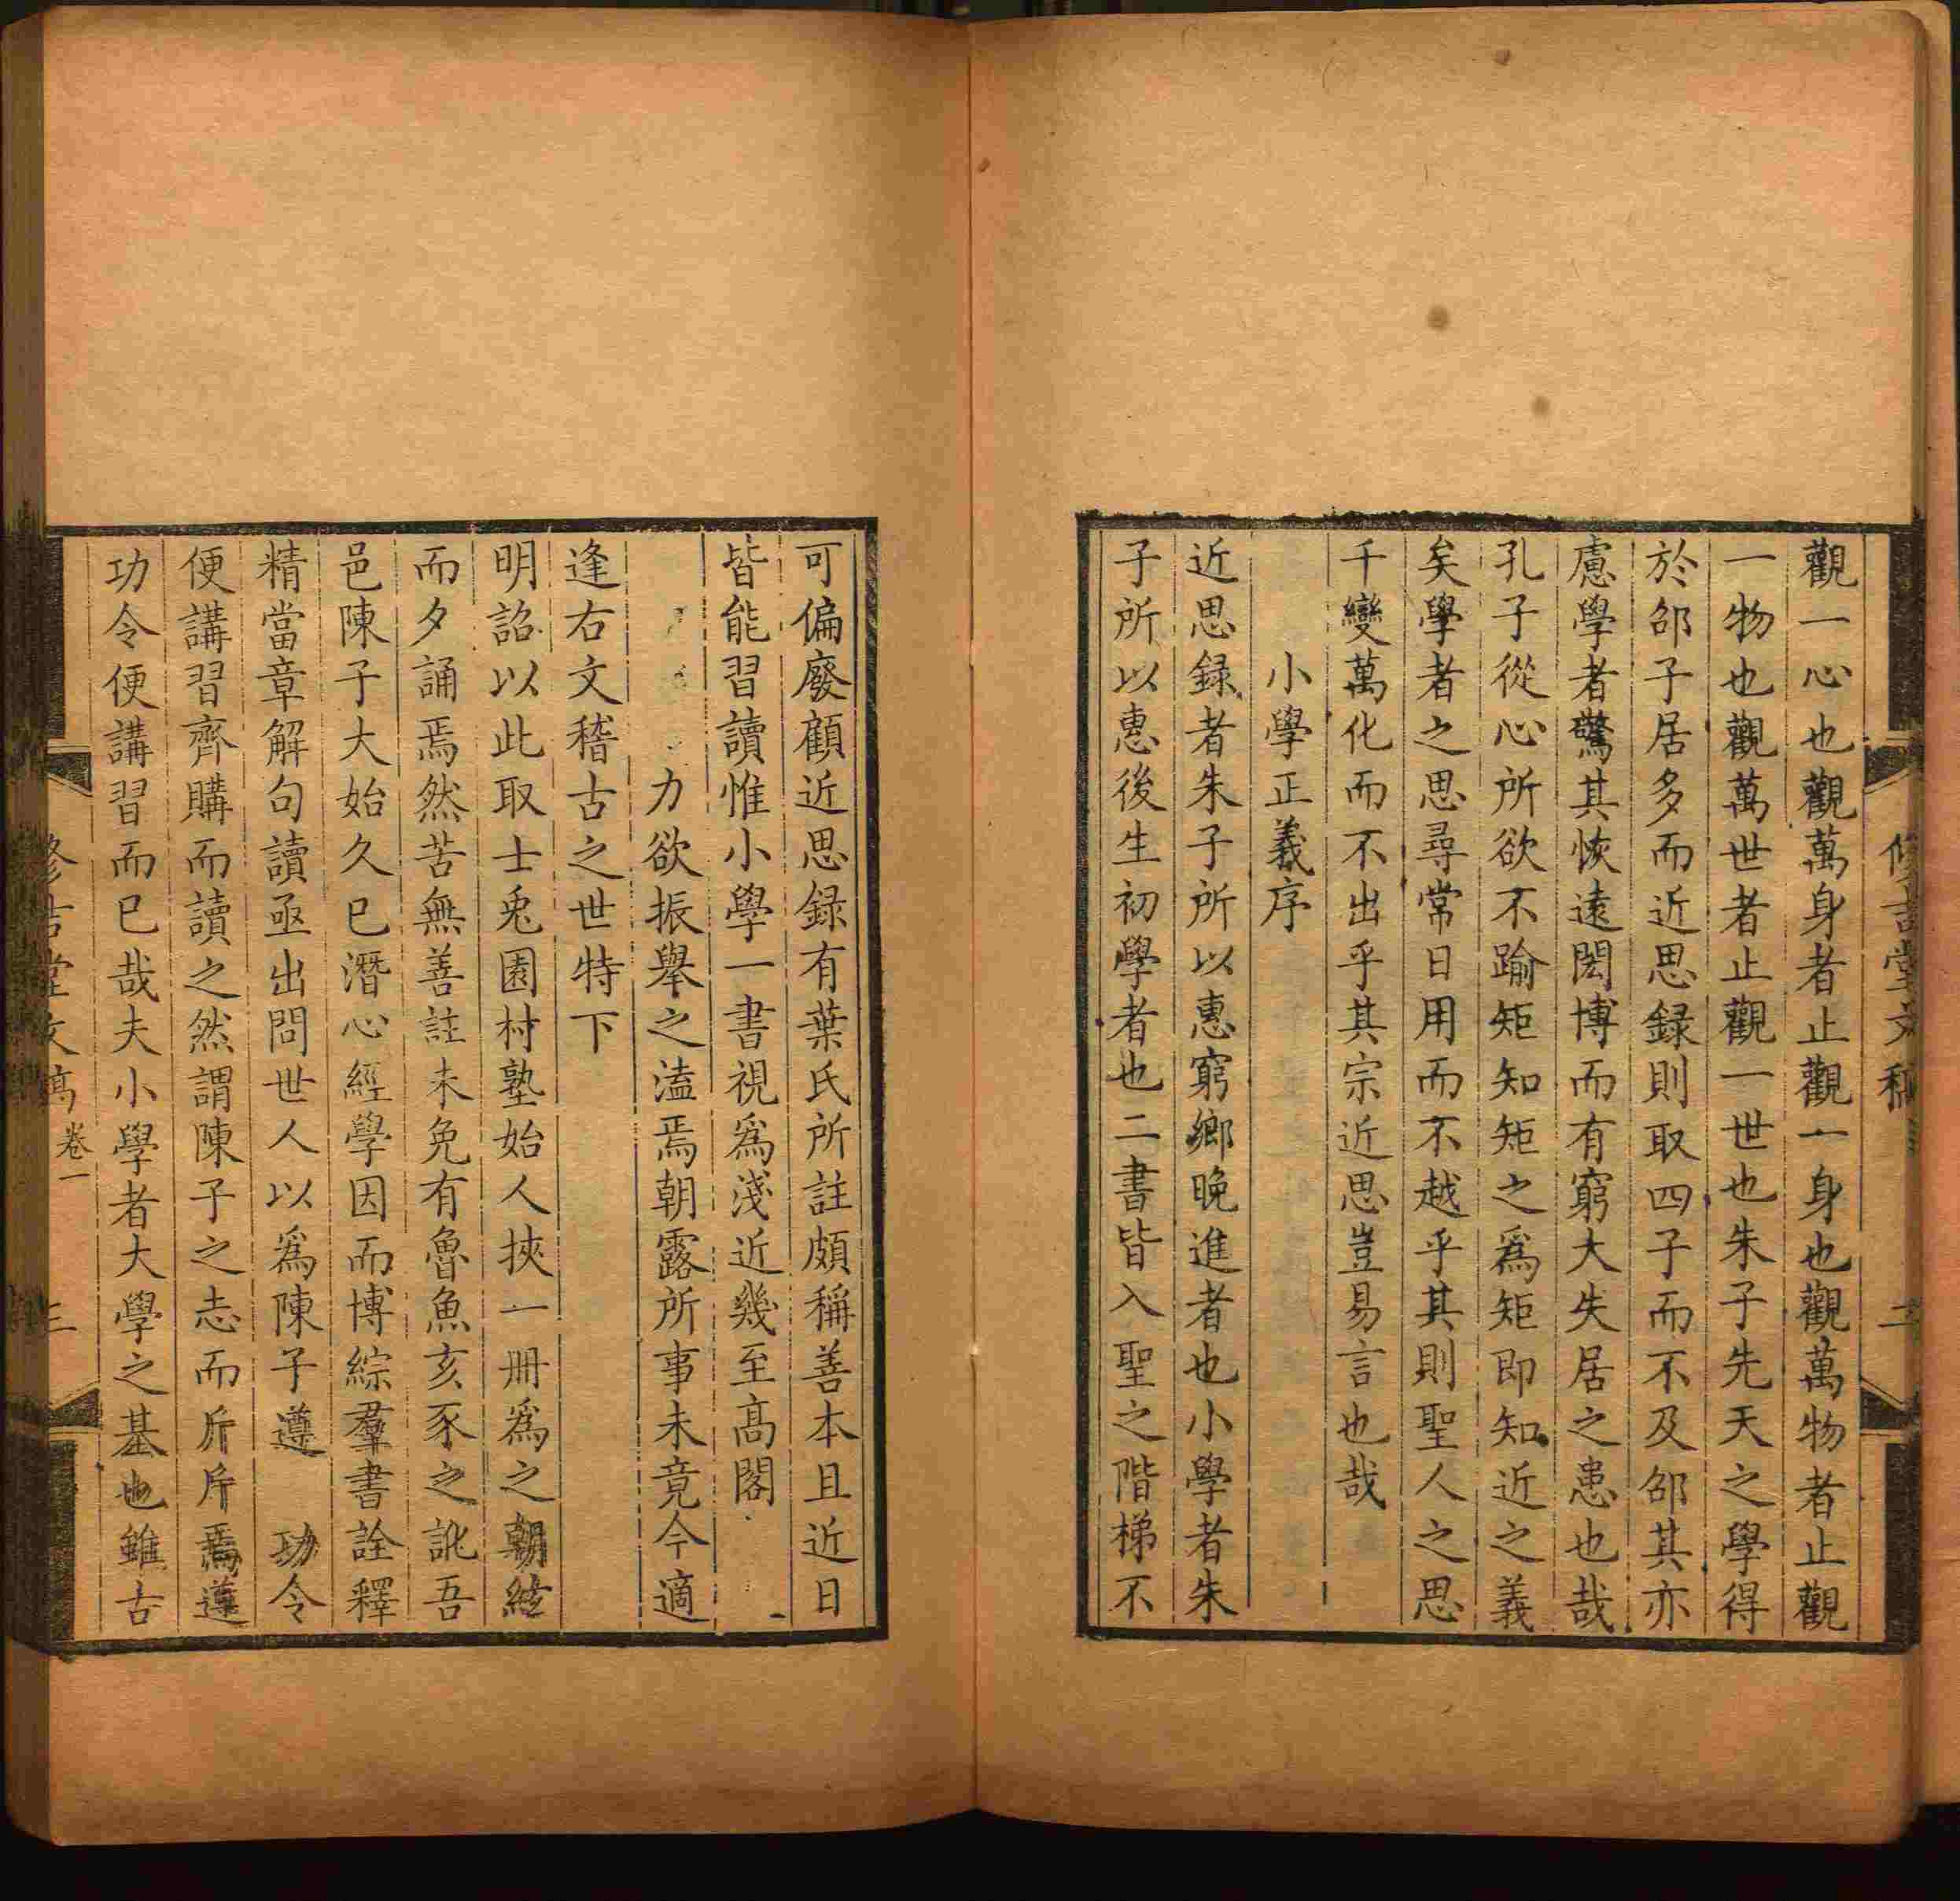 觀一心也觀萬身者止觀一身也觀萬物者止觀
一物也觀萬世者止觀一世也朱子先天之學得
於邵子居多而近思録則取四子而不及邵其亦
慮學者驚其恢遠閎博而有窮大失居之患也哉
孔子從心所欲不踰矩知矩之爲矩即知近之義
矣學者之思尋常日用而不越乎其則聖人之思
千變萬化而不出乎其宗近思豈易言也哉
小學正義序
近思録者朱子所以惠窮鄉晚進者也小學者朱
子所以惠後生初學者也二書皆入聖之階梯不
可偏廢顧近思録有葉氏所註頗稱善本且近日
皆能習讀惟小學一書視爲淺近幾至高閣
力欲振舉之溘焉朝露所事未竟今適
逢右文稽古之世特下
明詔以此取士兎園村塾始人挾一冊爲之朝絃
而夕誦焉然苦無善註未免有魯魚亥豕之訛吾
邑陳子大始久已潛心經學因而博綜羣書詮釋
精當章解句讀亟出問世人以爲陳子遵 功令
便講習齊購而讀之然謂陳子之志而斤斤焉遵
功令便講習而已哉夫小學者大學之基也雖古
堂文稿 卷一 三